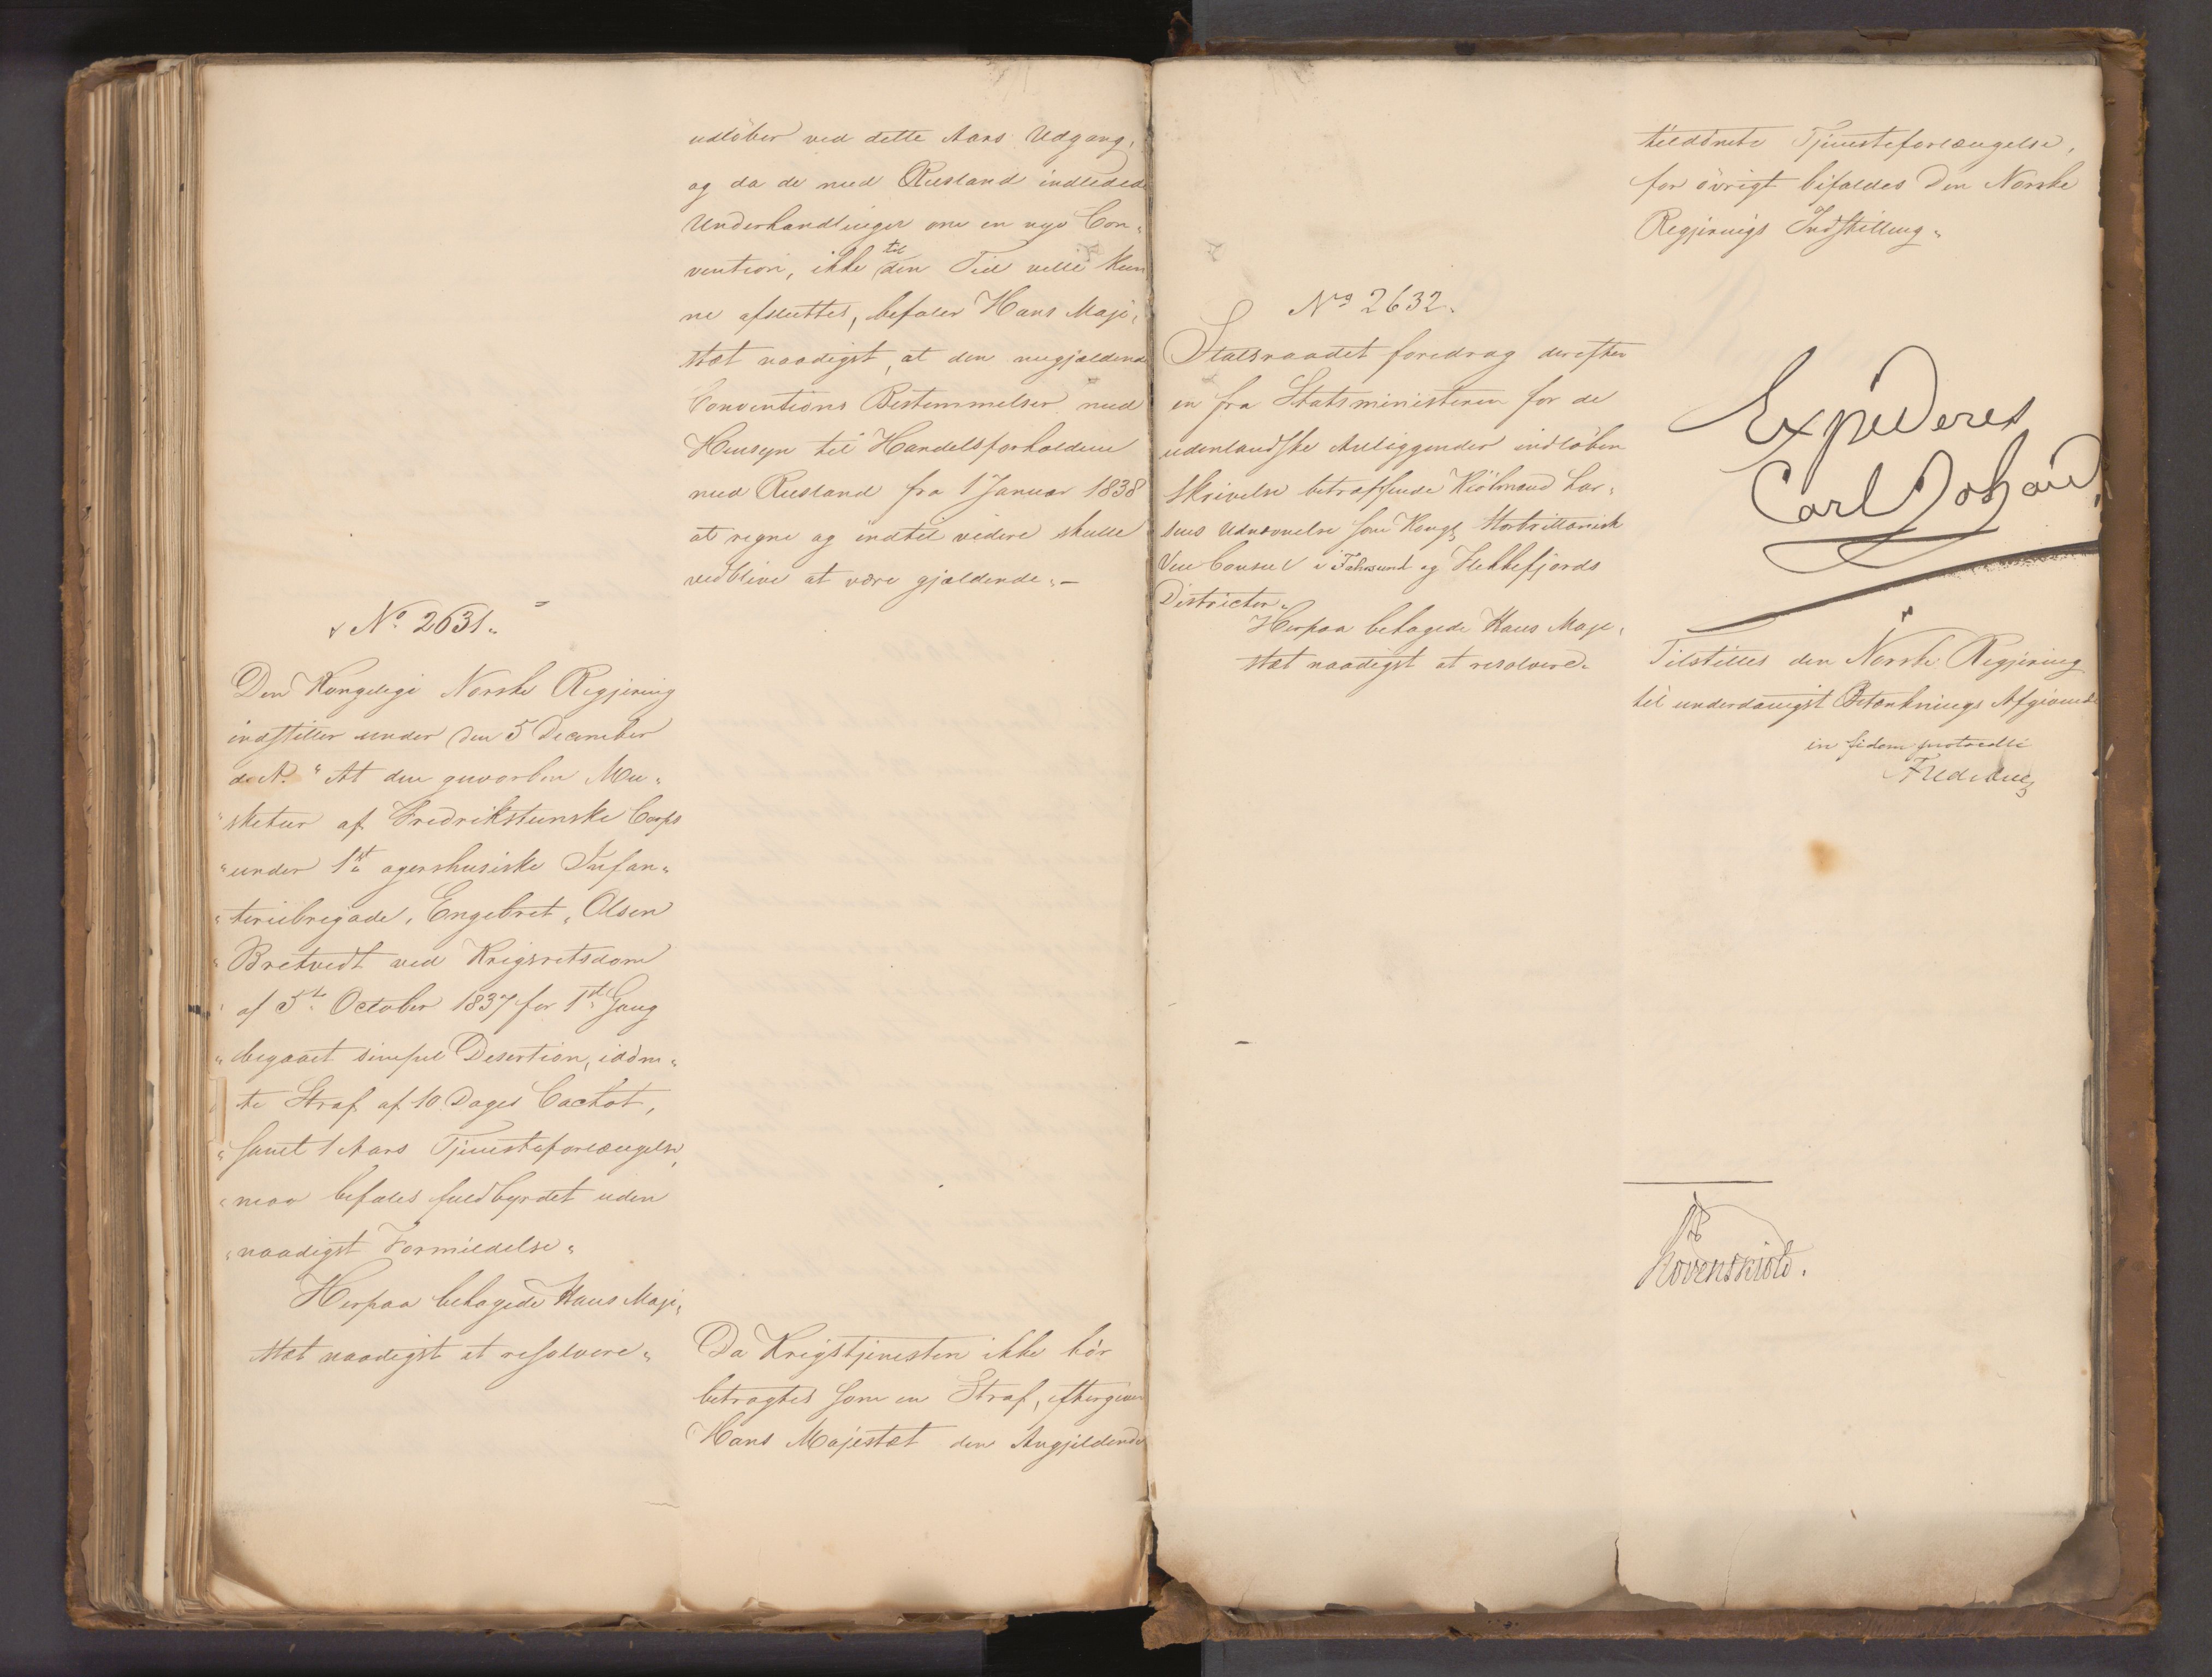 udløber ved dette Aars Udgang,
og da de med Rusland indledede
Underhandlinger om en nye Con„
vention, ikke til den Tid ville kun
ne afsluttes, befaler Hans Maje„
stæt naadigst, at den nugjældende
Conventions Bestemmelser med
Hensyn til Handelsforholdene
med Rusland fra 1 Januar 1838
at regne og indtil videre skulle
vedblive at være gjældende„ —
No 2631„
Den Kongelige Norske Regjering
indstiller under den 5 December
d.A. "At den gevorben Mu„
"sketeer af Fredrikstenske Corps
"under 1ste agershusiske Infan„
"teriebrigade, Engebret, Olsen
"Bretvedt ved Krigsretsdom
" af 5te October 1837 for 1ste Gang
"begaaet simpel Desertion, idøm„
te Straf af 10 Dages Cachot,
"samt 1 Aars Tjenesteforlængelse,
"maa befales fuldbyrdet uden
"naadigst Formildelse„
Herpaa behagede Hans Maje„
stæt naadigst at resolvere„
Da Krigstjenesten ikke bör
betragtes som en Straf, eftergiver
Hans Majestæt den Angjeldende
tildömte Tjenesteforlængelse,
for övrigt bifaldes Den Norske
Regjerings Indstilling„
No 2632.
Statsraadet foredrog derefter
en fra Statsministeren for de
udenlandske Anliggender indløben
Skrivelse betræffende Kiöbmand Lar„
sens Udnævnelse som Kongl. Storbrittanisk
Vice Consul i Fahrsund og Flekkefjords
Districter„
Herpaa behagede Hans Maje„
stæt naadigst at resolvere„
Expideres
Carl Johan
Tilstilles den Norske Regjering
til underdanigst Betænknings Afgivende
in fidem protocolli
Due
Løvenskiold.